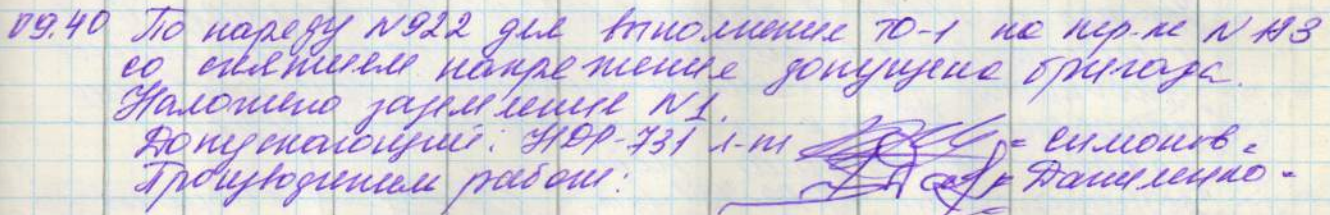 09.40 По наряду N922 для выполнения ТО-1 на пер-ке N 193
со снятием напряжения допущена бригада.
Наложено заземление N1.
Допускающий: НДР-731 л-т = Симонов =
Производитель работ: = Даниленко -